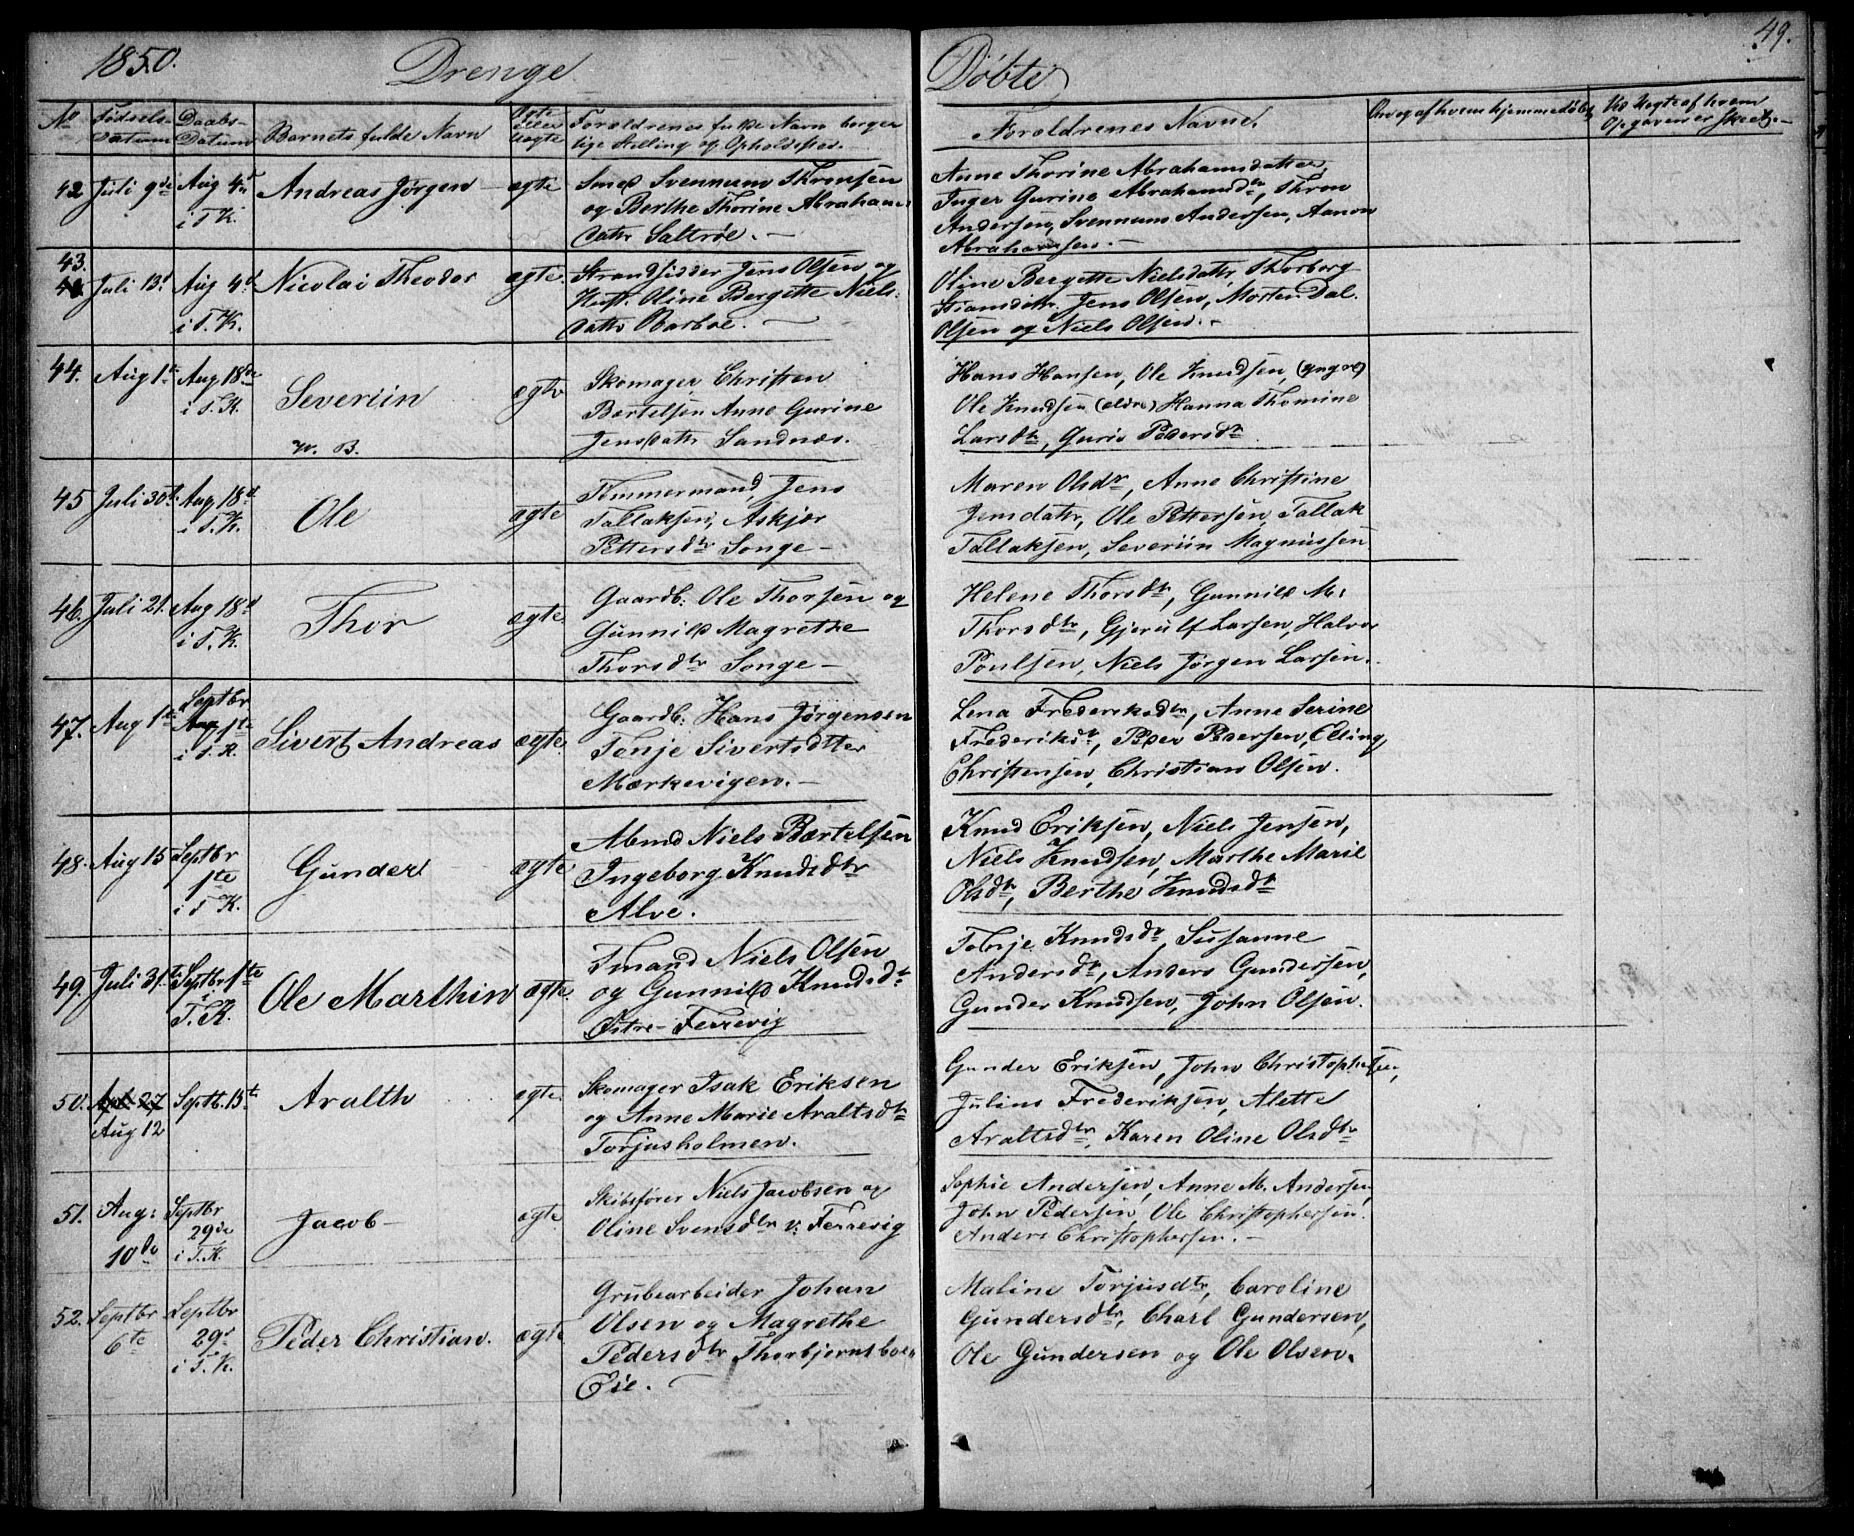 1850. Drenge Døbte 49.
No Fødsels- Datum Daabs- Datum Barnets fulde Navn Ægte eller Uægte Forældrenes fulde Navn borger lige Stilling og Opholdssted. Forældrenes Navne. Om og af hvem hjemmedøbt Ved Uægte af hvem Opgaven er skeet.
42 Juli 9de Aug 4de i T.K. Andreas Jørgen ægte
Smed Svennum Thronsen
og Berthe Thorine Abrahams
datr Saltrøe.
Anne Thorine Abrahamsdatter,
Inger Gurine Abrahamsdtr, Thron
Andersen, Svennum Andersen, Aanon
Abrahamsen.
43. Juli 13d Aug 4d i T.K. Nicolai Theodor ægte.
Strandsidder Jens Olsen og
Hustr. Oline Bergitte Niels:
datr Barboe.
Oline Bergitte Nielsdatr, Thorborg
Jens Olsen, Morten Dal.
Olsen og Niels Olsen.
44. Aug 1te Aug 18de i T.K. Severiin ægte
N. B.
Skomager Christen
Bertelsen Anne Gurine
Jensdatr Sandnæs.
Hans Hansen, Ole Knudsen, (yngre)
Ole Knudsen (eldre) Hanna Thomine
Larsdtr, Guri Pedersdtr
45 Juli 30t. Aug 18d i T.K. Ole ægte
Tømmermand, Jens
Tallaksen, Askjær
Pettersdtr Songe
Maren Olsdr, Anne Christine
Jensdatr, Ole Pettersen, Tallak
Tallaksen, Severiin Magnussen
46. Juli 21. Aug 18d i T.K. Thor ægte
Gaardb: Ole Thorsen og
Gunnild Magrethe
Thorsdtr Songe
Helene Thorsdtr, Gunnild M:
Thorsdtr, Gjerulf Larsen, Halvor
Poulsen, Niels Jørgen Larsen.
47. Aug 1te Septbr Aug 1te i T.K. Sivert Andreas ægte.
Gaardb: Hans Jørgensen
Tonje Sivertsdtter
Mærkevigen.
Lena Frederiksdtr, Anne Serine
Frederiksdtr, Peder Pedersen, Elling
Christensen, Christian Olsen.
48. Aug 15 Septbr 1te i T K. Gunder ægte
Abmd Niels Bærtelsen
Ingeborg Knudsdtr
Alve.
Knud Eriksen, Niels Jensen,
Niels Knudsen, Marthe Marie
Olsdtr, Berthe Knudsdtr
49. Juli 31te Septbr 1te i T.K. Ole Marthin ægte.
Tmand Niels Olsen
og Gunnild Knudsdtr
Østre-Ferrevig
Tobje Knudsdtr, Susanne
Andersdtr, Anders Gundersen,
Gunder Knudsen, John Olsen.
50. Aug 12 Septb. 15t Aralth ægte
Skomager Isak Eriksen
og Anne Marie Araltsdtr
Torjusholmen.
Gunder Eriksen, John Christophersen,
Julius Frederiksen, Alette
Araltsdtr, Karen Oline Olsdtr
51. Aug: 10de Septbr 29de i T.K. Jacob ægte
Skibsfører Niels Jacobsen og
Oline Svensdtr v: Ferrevig
Sophie Andersen, Anne M. Andersen
John Pedersen, Ole Christophersen.
Anders Christophersen.
52. Septbr 6te Septbr 29d i T.K. Peder Christian. ægte
Grubearbeider Johan
Olsen og Magrethe
Pedersdtr Thorbjørnsboe
Eie.
Maline Torjusdtr, Caroline
Gundersdtr, Charl Gundersen,
Ole Gundersen og Ole Olsen.